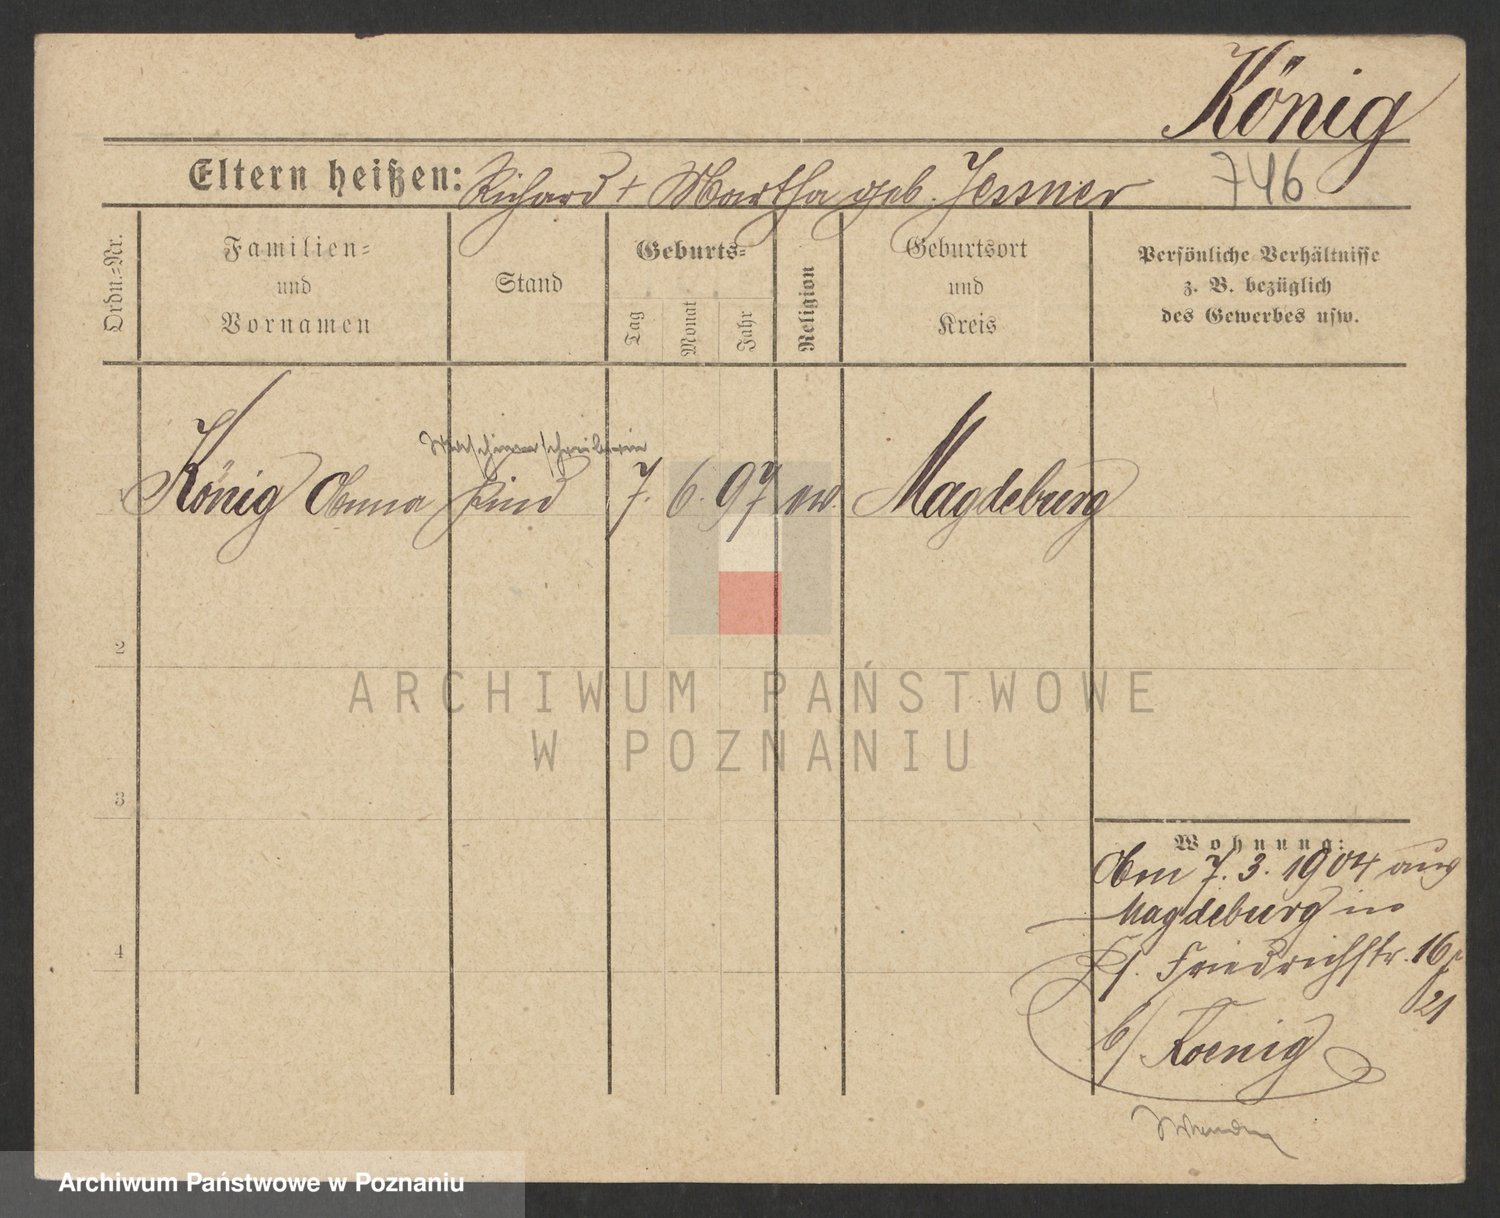 König
746
Eltern heißen: Richard + Martha geb. Jessner
Ordn.=Nr.
Familien=
und
Vornamen
Stand
Geburts=
Tag
Monat
Jahr
Religion
Geburtsort
und
Kreis
Persönliche Verhältnisse
z. B. bezüglich
des Gewerbes usw.
Maschinenschreiberin
König Anna Kind 7. 6. 97 ev. Magdeburg
2
3
4
Wohnung:
Am 7. 3. 1904 aus
Magdeburg in
Friedrichstr. 16
21
b/ Koenig
ARCHIWUM PAŃSTWOWE
W POZNANIU
Archiwum Państwowe w Poznaniu